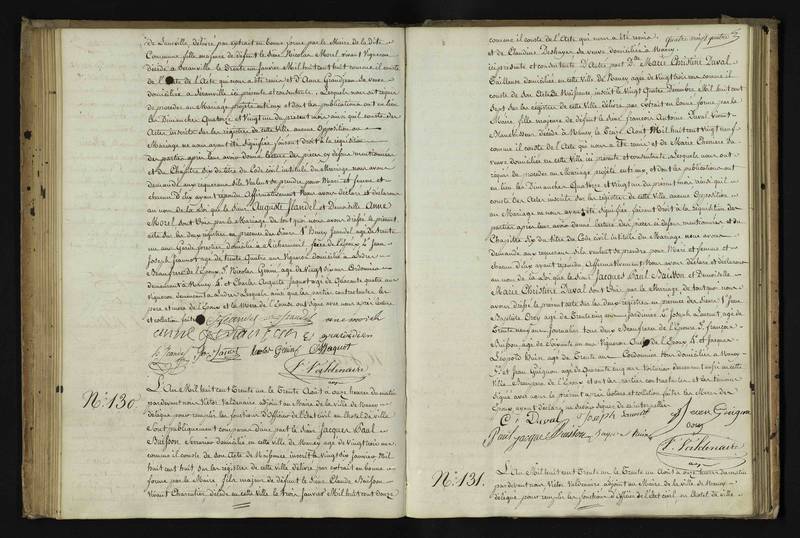 de Leinville, délivré par extrait en bonne forme par le Maire de la dite
Commune, fille majeure de défunt le Sieur Nicolas Morel vivant Vigneron
décédé à le Trente un Janvier Mil huit cent huit comme il conste
de l'Acte qui nous a été remis et d'Anne Grandjean sa veuve
domiciliée à ici présente et consentante, Lesquels nous ont requis
de procéder au Mariage projetté entr'eux et dont les publications ont eu lieu
les Dimanches Quatorze et Vingt un du présent mois ainsi qu'il conste des
Actes inscrits sur les registres de cette Ville aucune Opposition au
Mariage ne nous ayant été signifiée faisant droit à la réquisition
des parties après leur avoir donné lecture des pièces cy dessus mentionnées
et du Chapitre Six du titre du Code civil intitulé du Mariage nous avons
demandé aux requérans s'ils Veulent se prendre pour Mari et femme et
chacun d'Eux ayant répondu Affirmativement Nous avons déclaré et déclarons
au nom de la Loi que le Sieur Auguste Jandel et Demoiselle Anne
Morel sont Unis par le Mariage de tout quoi nous avons dressé le présent
acte sur les deux registres en présence des Sieurs 1° Jandel agé de trente
un ans Garde forestier domicilié à frère de l'Epoux 2° Jean
Joseph Jacquot agé de trente Quatre ans Vigneron domicilié à
Beaufrère de l'Epoux 3° Nicolas Genin agé de Vingt Six ans Cordonnier
demeurant à Nancy 4° et Charles Auguste Jaquot agé de Quarante quatre ans
Vigneron demeurant à Lesquels ainsi que les parties contractantes les
père et mère de l'Epoux et la Mère de l'Epouse ont signé avec nous après lecture
et collation faite
Jandel
anne morel
anne
Jandel
Jaquot
V. Valdenaire
N.° 130.
L'An Mil huit cent Trente un le Trente Août à onze heures du matin
pardevant nous Victor Valdenaire adjoint au Maire de la Ville de Nancy
délégué pour remplir les fonctions d'Officier de l'Etat civil en l'hotel de ville
Sont publiquement comparus d'une part le Sieur Jacques Paul
Buisson Serrurier domicilié en cette ville de Nancy agé de Vingt trois ans
comme il conste de son Acte de Naissance inscrit le Vingt dix Janvier Mil
huit cent huit sur les registres de cette ville délivré par extrait en bonne
forme par le Maire fils majeur de défunt le Sieur Claude Buisson
Vivant Charretier, décédé en cette Ville le trois Janvier Mil huit cent douze
quatre vingt quatre
comme il conste de l'Acte qui nous a été remis
et de Claudine Deshayes sa veuve domiciliée à Nancy
ici présente et consentante D'autre part Dlle Marie Christine Duval
Tailleuse domiciliée en cette Ville de Nancy agée de Vingt trois ans comme il
conste de son Acte de Naissance inscrit le Vingt Quatre Décembre Mil huit cent
Sept sur les registres de cette Ville délivré par Extrait en bonne forme par le
Maire, fille majeure de défunt le Sieur François Antoine Duval Vivant
décédé à Nancy le Seize Août Mil huit cent Vingt neuf
comme il conste de l'Acte qui nous a été remis et de Marie sa
veuve domiciliée en cette Ville ici présente et consentante Lesquels nous ont
requis de procéder au Mariage projetté entr'eux, et dont les publications ont
eu lieu les Dimanches Quatorze et Vingt un du présent mois ainsi qu'il
conste des Actes inscrits sur les registres de cette Ville aucune Opposition
au Mariage ne nous ayant été signifiée faisant droit à la réquisition des
parties après leur avoir donné lecture des pièces ci dessus mentionnées et du
Chapitre Six du titre du Code civil intitulé du Mariage nous avons
demandé aux requérans s'ils veulent se prendre pour Mari et femme et
chacun d'Eux ayant répondu Affirmativement Nous avons déclaré et déclarons
au nom de la Loi que le Sieur Jacques Paul Buisson et Demoiselle
Marie Christine Duval sont Unis par le Mariage de tout quoi nous
avons dressé le présent acte sur les deux registres en présence des Sieurs 1° Jean
Baptiste agé de Trente cinq ans 2° Joseph Laurent agé de
Trente neuf ans Journalier tous deux Beaufrères de l'Epoux 3° François
Buisson, agé de Soixante un ans Vigneron Oncle de l'Epoux 4° et Jacques
Léopold agé de Trente ans Cordonnier tous domiciliés à Nancy
et Jean Guignon agé de Quarante cinq ans demeurant aussi en cette
Ville de l'Epoux et ont les parties contractantes et les témoins
signé avec nous le présent après lecture et collation faites les Mères des
Epoux ayant déclaré ne savoir signer de ce interpellées
C. Duval
Joseph
Jean Guignon
Paul Jacques Buisson
V. Valdenaire
N.° 131.
L'An Mil huit cent Trente un le Trente un Août à onze heures du matin
pardevant nous Victor Valdenaire adjoint au Maire de la Ville de Nancy
délégué pour remplir les fonctions d'Officier de l'Etat civil en l'hotel de ville